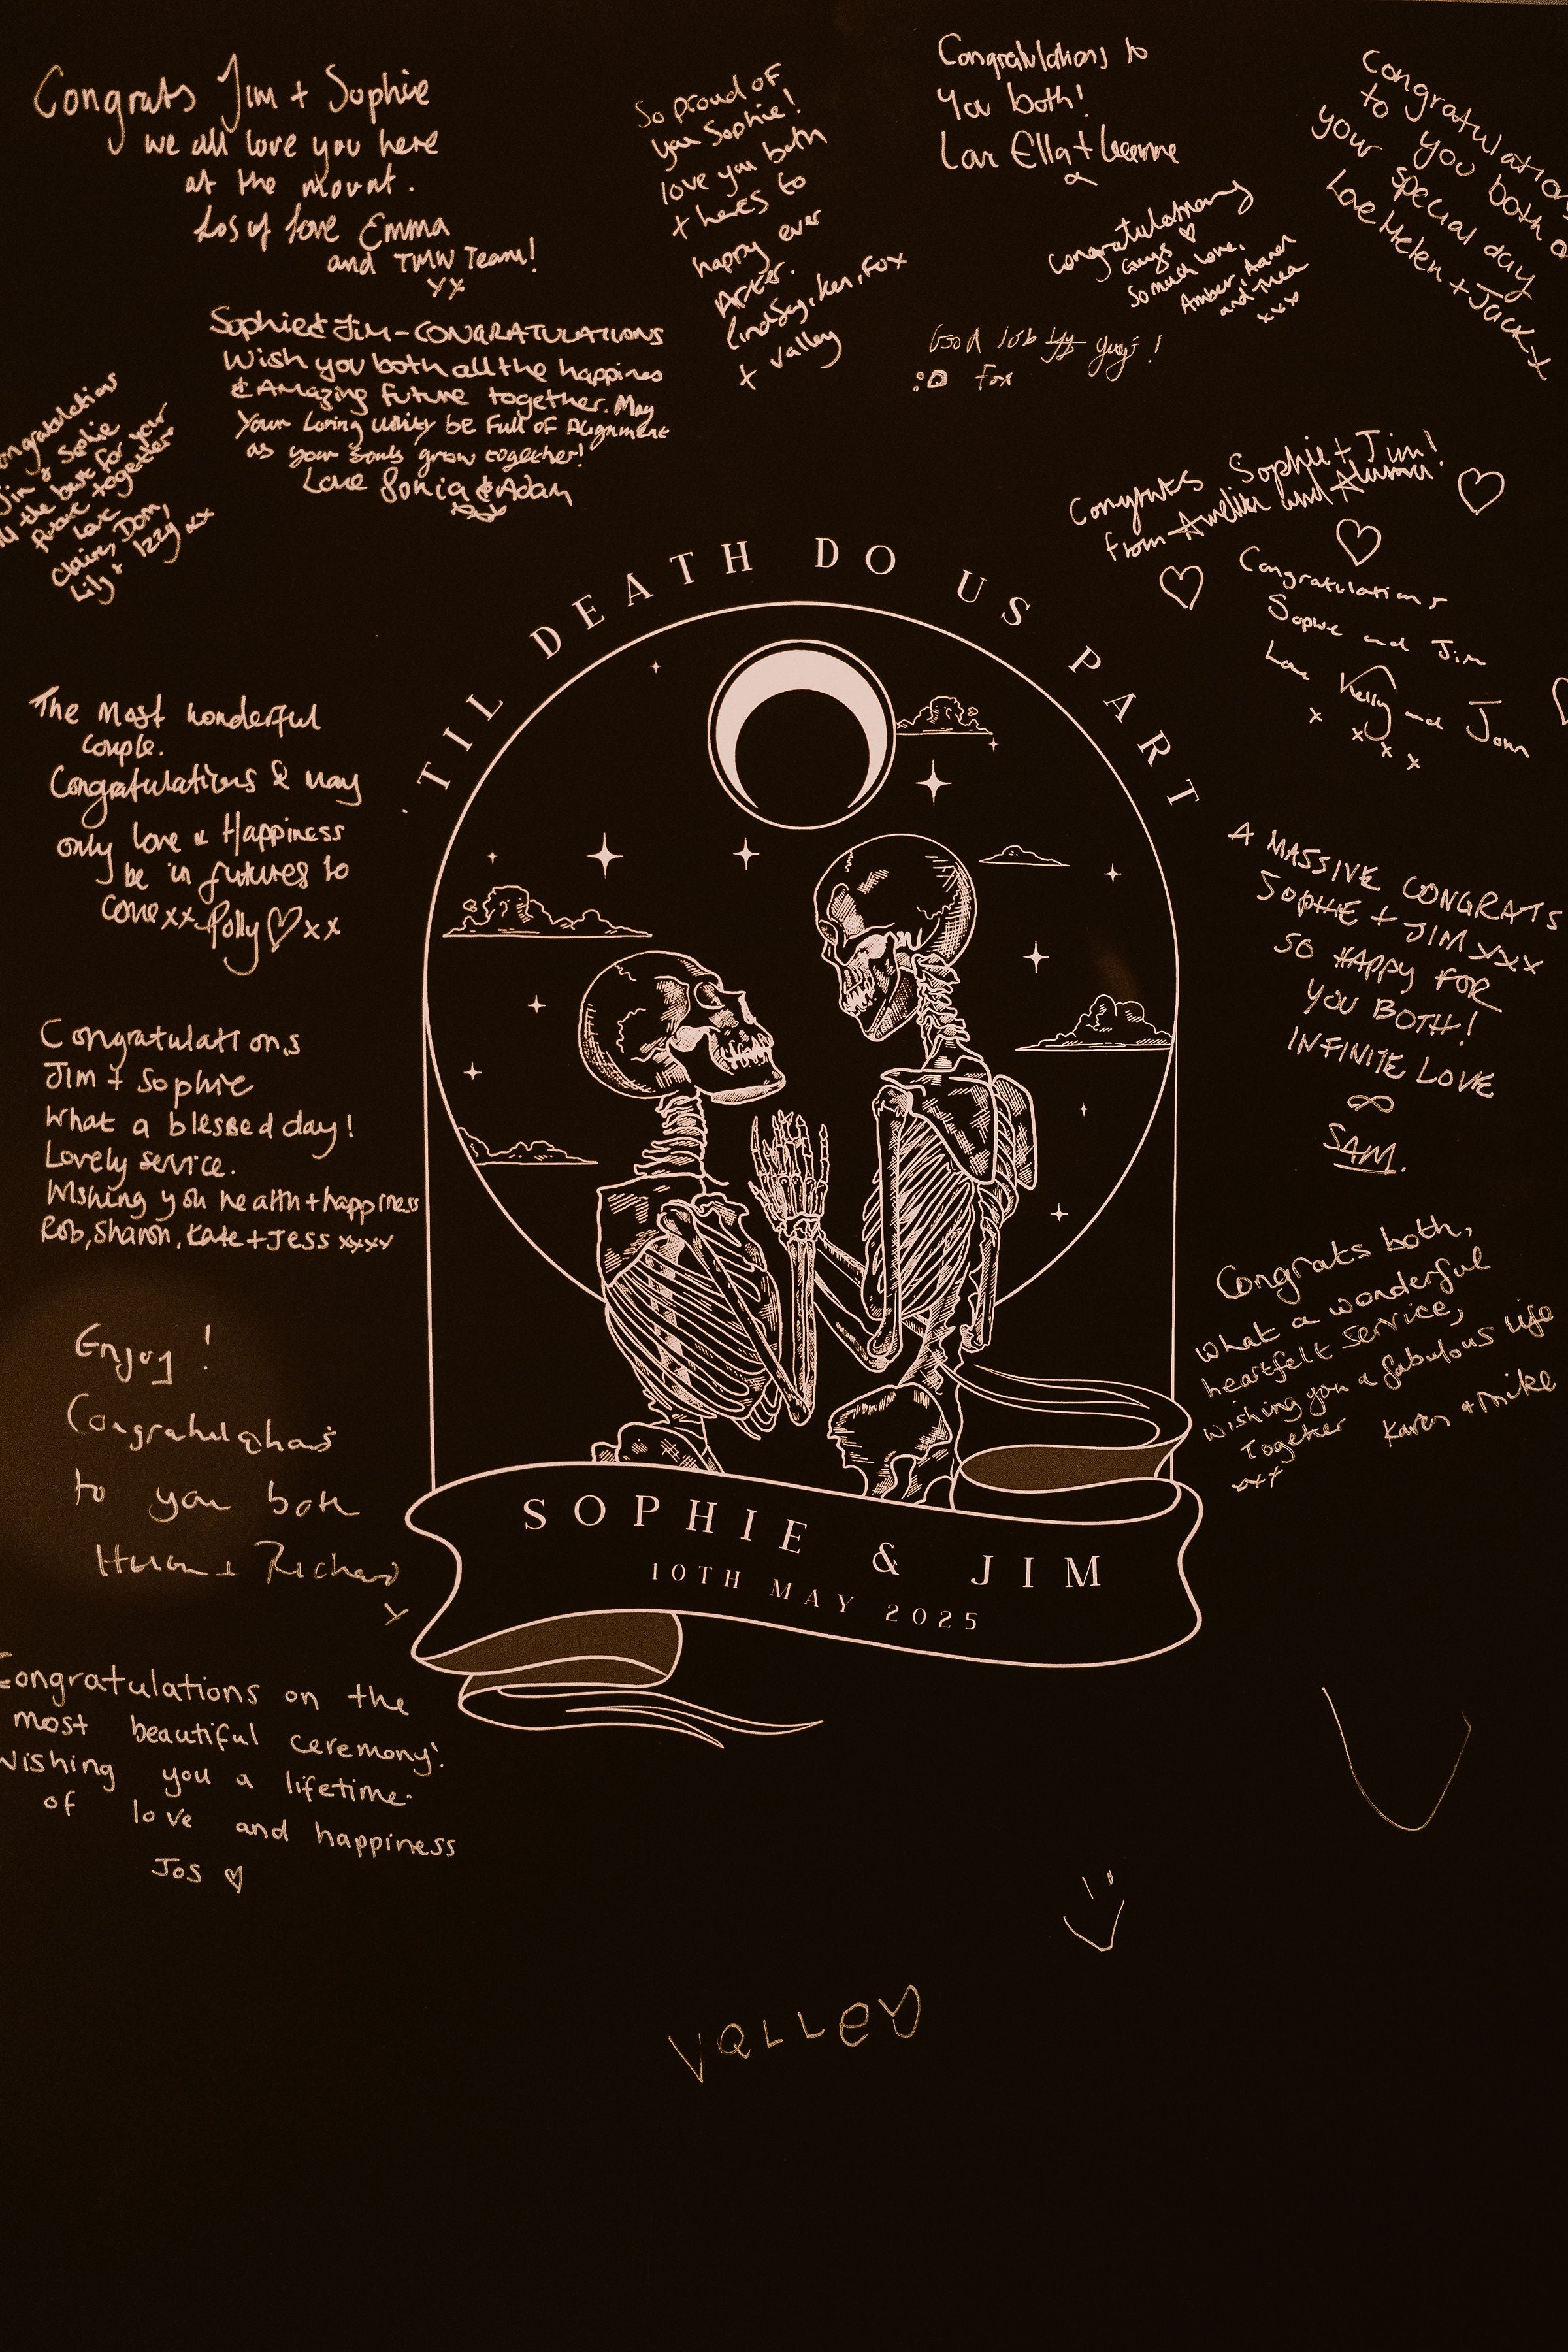 Congrats Jim + Sophie
we all love you here
at the mount.
Los of love Emma
and TMW Team!
xx
So proud of
you Sophie!
love you both
+ heres to
happy ever
After.
Lindsay, Ken, Fox
+ Valley
x
Congratulations to
You both!
Love Ella +
x
Congratulations
Guys ♡
So much love,
Amber, Aaron
and Thea
xxx
Congratulation
to you both o
your special day
Love Helen + Jack x
Good job guys!
:D Fox
Sophie & Jim - CONGRATULATIONS
Wish you both all the happines
& Amazing Future together. May
Your Loving Unity be Full of Alignment
as your souls grow together!
Love Sonia & Adam
ongratulations
Jim & Sophie
All the best for your
future together
Love
Claire, Dom,
Lily + Izzy xx
Congrates Sophie + Jim!
from Amelia and
Congratulations
Sophie and Jim
Love Kelly and John
x x x x
'TIL DEATH DO US PART
The Most wonderful
Couple.
Congratulations & may
only love & Happiness
be in futures to
come xx Polly ♡ xx
A MASSIVE CONGRATS
SOPHIE + JIM xxx
SO HAPPY FOR
YOU BOTH!
INFINITE LOVE
∞
SAM.
Congratulations
Jim + Sophie
What a blessed day!
Lovely service.
Wishing you health + happiness
Rob, Sharon, Kate + Jess xxxx
Congrats both,
what a wonderful
heartfelt service,
wishing you a fabulous life
Together Karen + Mike
xxx
Enjoy!
Congratulations
to you both
Helen + Richard
x
SOPHIE & JIM
10TH MAY 2025
Congratulations on the
most beautiful ceremony!
Wishing you a lifetime
of love and happiness
Jos ♡
VALLEY